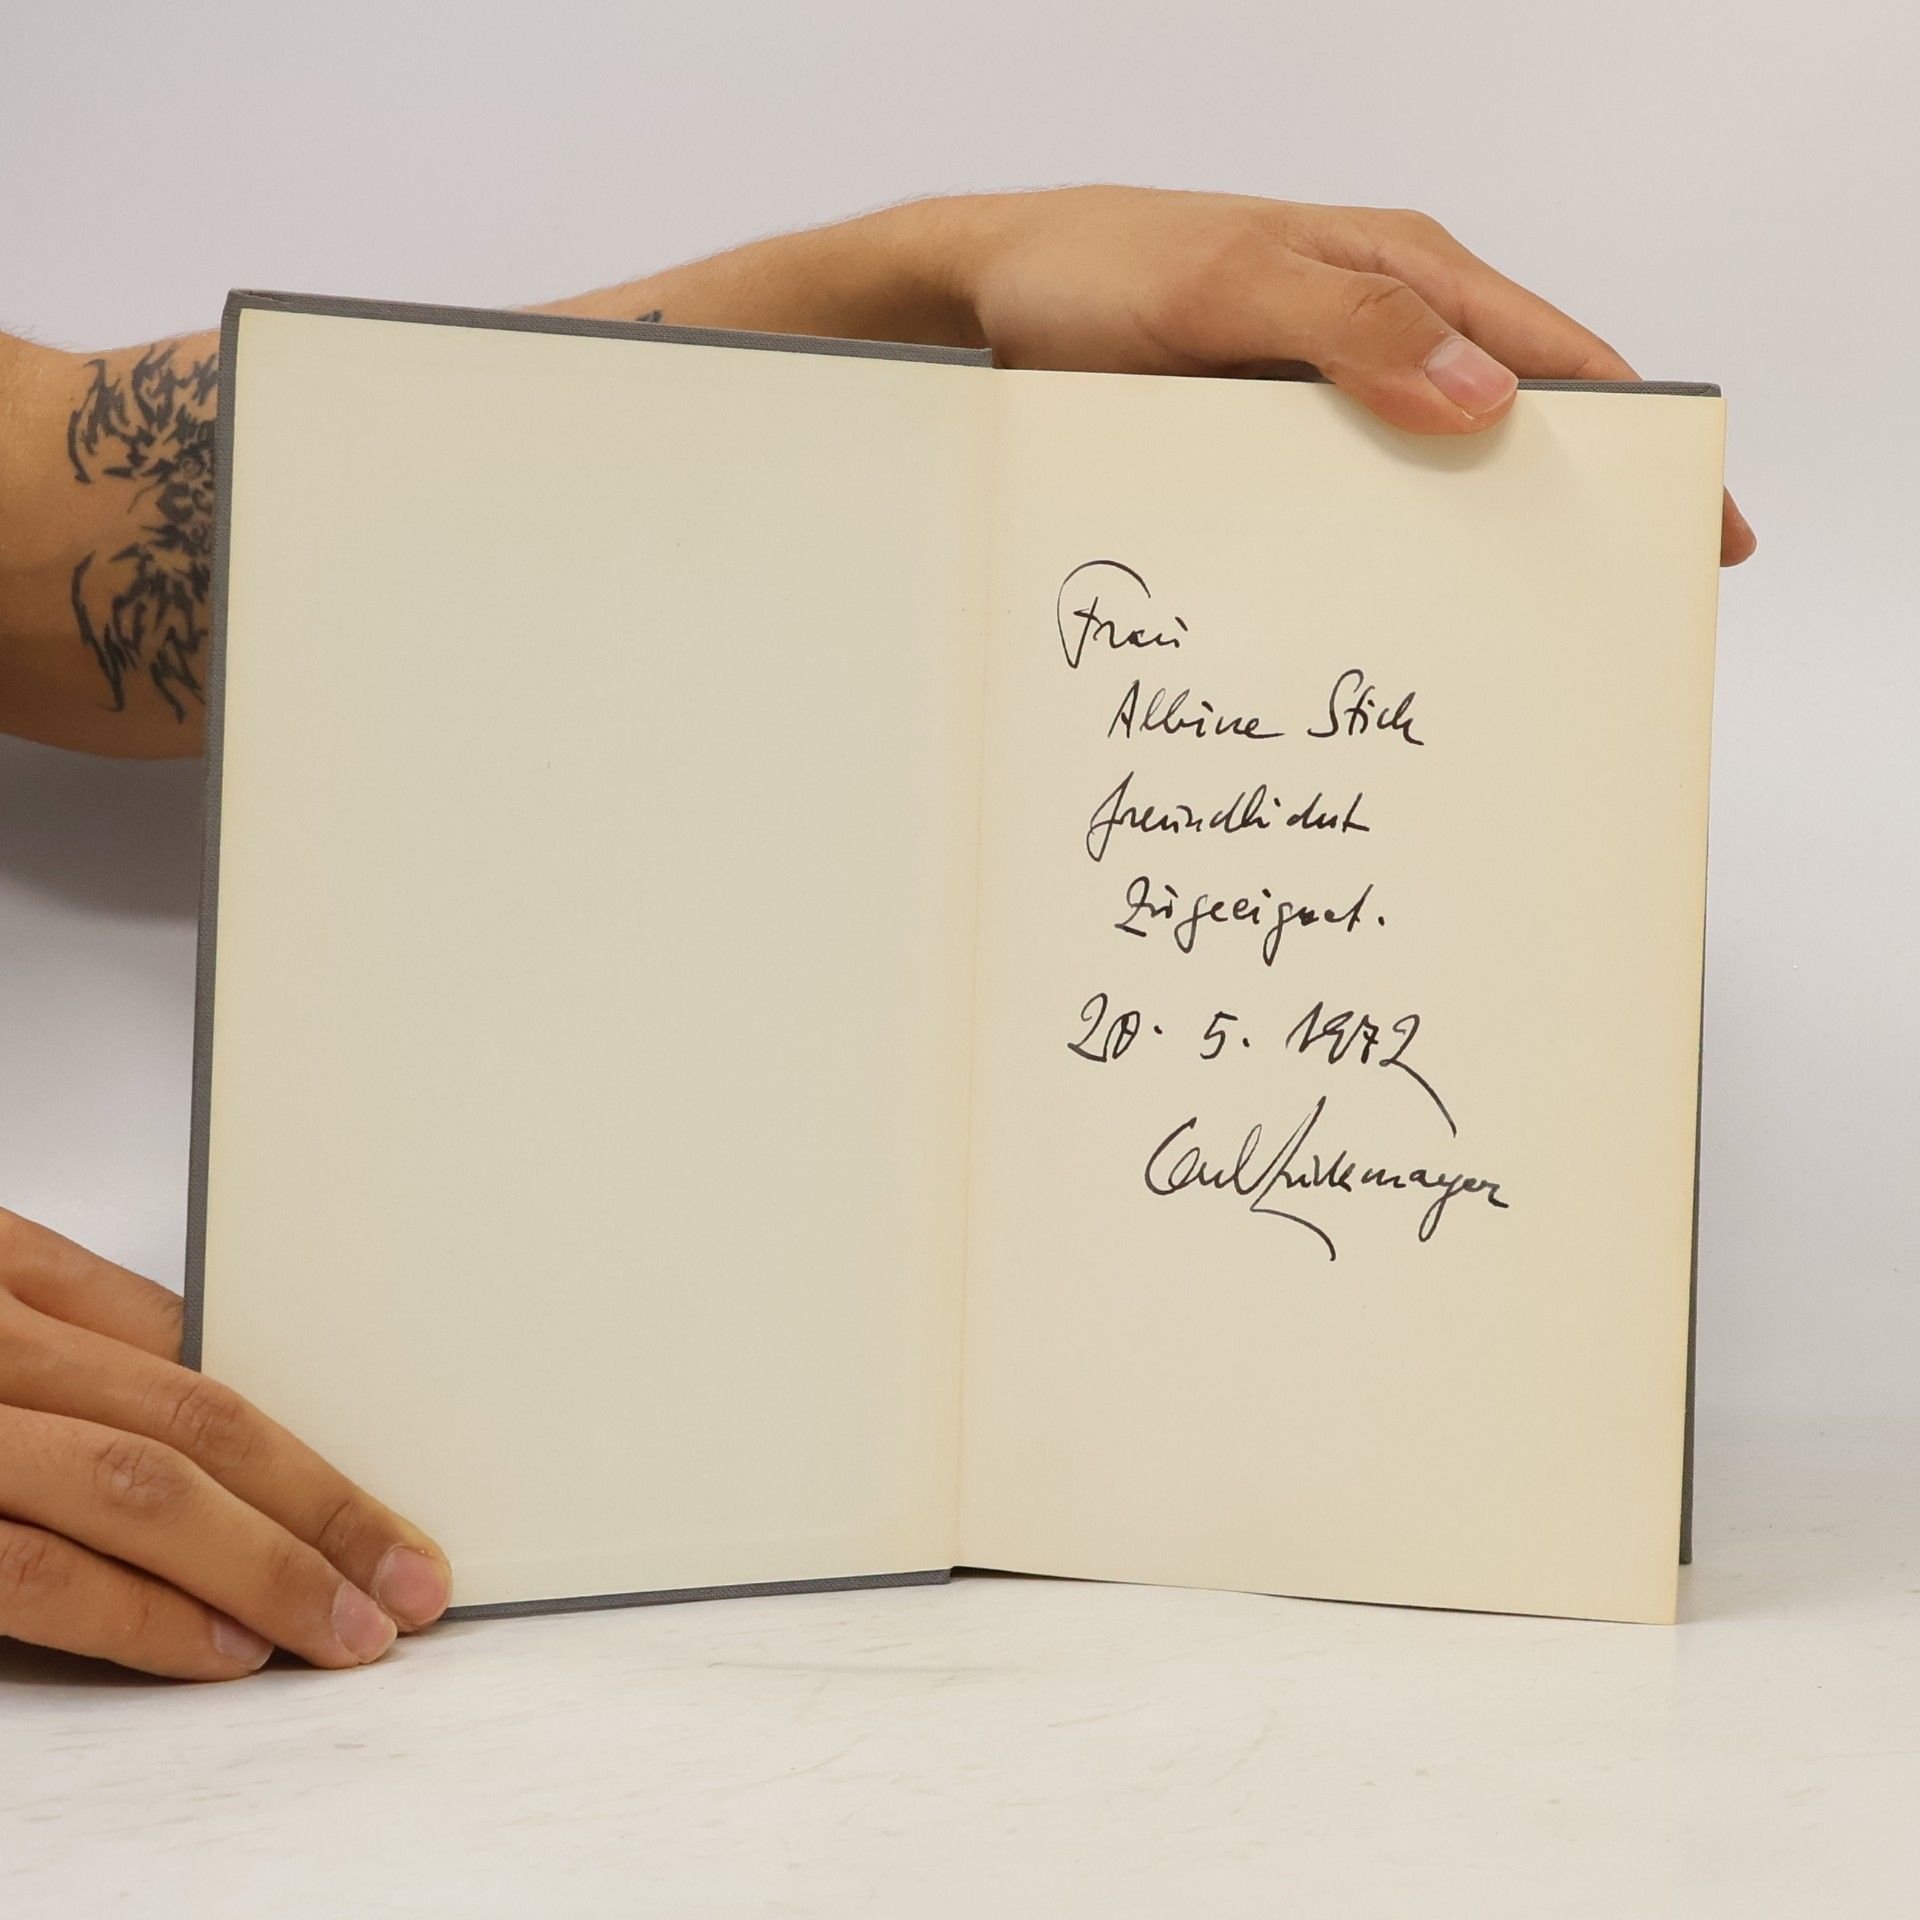 Frau
Albine Stich
freundlichst
Zugeeignet.
20. 5. 1972
Carl Zuckmayer